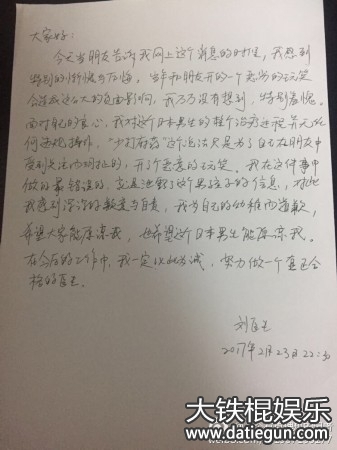 大家好：
今天当朋友告诉我网上这个消息的时候，我感到
特别的惭愧与后悔。当年和朋友开的一个恶劣的玩笑
会造成这么大的负面影响，我万万没有想到，特别羞愧。
面对自己的良心，我对这个日本男生的整个治疗过程并无任
何违规操作，“少打麻药”这个说法只是为了自己在朋友中
受到关注而胡扯的，开了个恶劣的玩笑。我在这件事中
做的最错误的，就是泄露了这个男孩子的信息，对此
我感到深深的歉意与自责，我为自己的幼稚而道歉，
希望大家能原谅我，也希望这个日本男生能原谅我。
在今后的工作中，我一定以此为诫，努力做一个真正合
格的医生。
刘医生
2017年2月23日22:30
大铁棍娱乐
www.datiegun.com